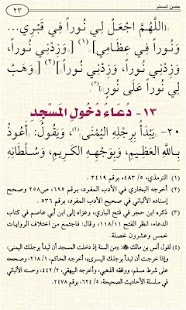 حصن المسلم
٢٣
(اللَّهُمَّ اجْعَلْ لِي نُوراً فِي قَبْرِي...
وَنُوراً فِي عِظَامِي) [(وَزِدْنِي نُوراً،
وَزِدْنِي نُوراً، وَزِدْنِي نُوراً)] [(وَهَبْ
لِي نُوراً عَلَى نُورٍ)]
١٣- دُعَاءُ دُخُولِ المَسْجِدِ
٢٠- يَبْدَأُ بِرِجْلِهِ اليُمْنَى، وَيَقُولُ: أَعُوذُ
بِاللَّهِ العَظِيمِ، وَبِوَجْهِهِ الكَرِيمِ، وَسُلْطَانِهِ
(١) الترمذي، ٥/ ٤٨٣، برقم ٣٤١٩.
(٢) أخرجه البخاري في الأدب المفرد، برقم ٦٩٥، ص٢٥٨ وصحح
إسناده الألباني في صحيح الأدب المفرد، برقم ٥٣٦.
(٣) ذكره ابن حجر في فتح الباري، وعزاه إلى ابن أبي عاصم في كتاب
الدعاء، انظر الفتح ١١٨/١١، وقال: فاجتمع من اختلاف الروايات
خمس وعشرون خصلة.
(٤) لقول أنس بن مالك: من السنة إذا دخلت المسجد أن تبدأ برجلك اليمنى،
وإذا خرجت أن تبدأ برجلك اليسرى أخرجه الحاكم، ٢١٨/١، وصححه
على شرط مسلم، ووافقه الذهبي، وأخرجه البيهقي، ٤٤٢/٢، وحسنه الألباني
في سلسلة الأحاديث الصحيحة، ٦٢٤/٥، برقم ٢٤٧٨.